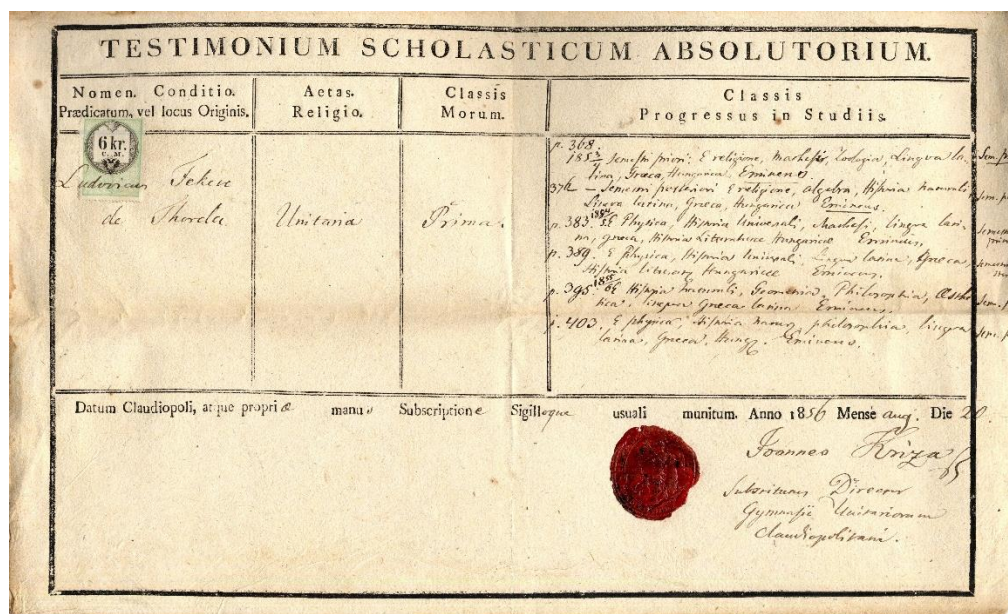 TESTIMONIUM SCHOLASTICUM ABSOLUTORIUM.
Nomen. Conditio.
Prædicatum, vel locus Originis.
Aetas.
Religio.
Classis
Morum.
Classis
Progressus in Studiis.
6 kr.
C. M.
Ludovicus Fekete
de Thorda
Unitaria
Prima.
p. 368.
185 semestri priori: E religione, Mathesi, Zoologia, Lingva la-
tina, Graeca, Hungarica Eminens
37 – Semestri posteriori E religione, algebra, Historia naturali
Lingva latina, Graeca, Hungarica Eminens.
p. 383. E Physica, Historia Universali, Mathesi, lingva lati-
na, graeca, Historia Literaturae Hungaricae Eminens,
p. 389. E Physica, Historia Universali Lingva latina, Graeca,
Historia Hungaricae Eminens.
p. 395 Historia naturali, Geometria, Philosophia, Aesthe-
tica, lingva Graeca latina Eminens.
p. 403. E physica, Historia philosophia, lingva
latina, Graeca, Hung. Eminens.
Datum Claudiopoli, atque propriæ manus Subscriptione Sigilloque usuali munitum. Anno 1856 Mense aug. Die 20.
Joannes Kriza
Substitutus Director
Gymnasii Unitariorum
Claudiopolitani.